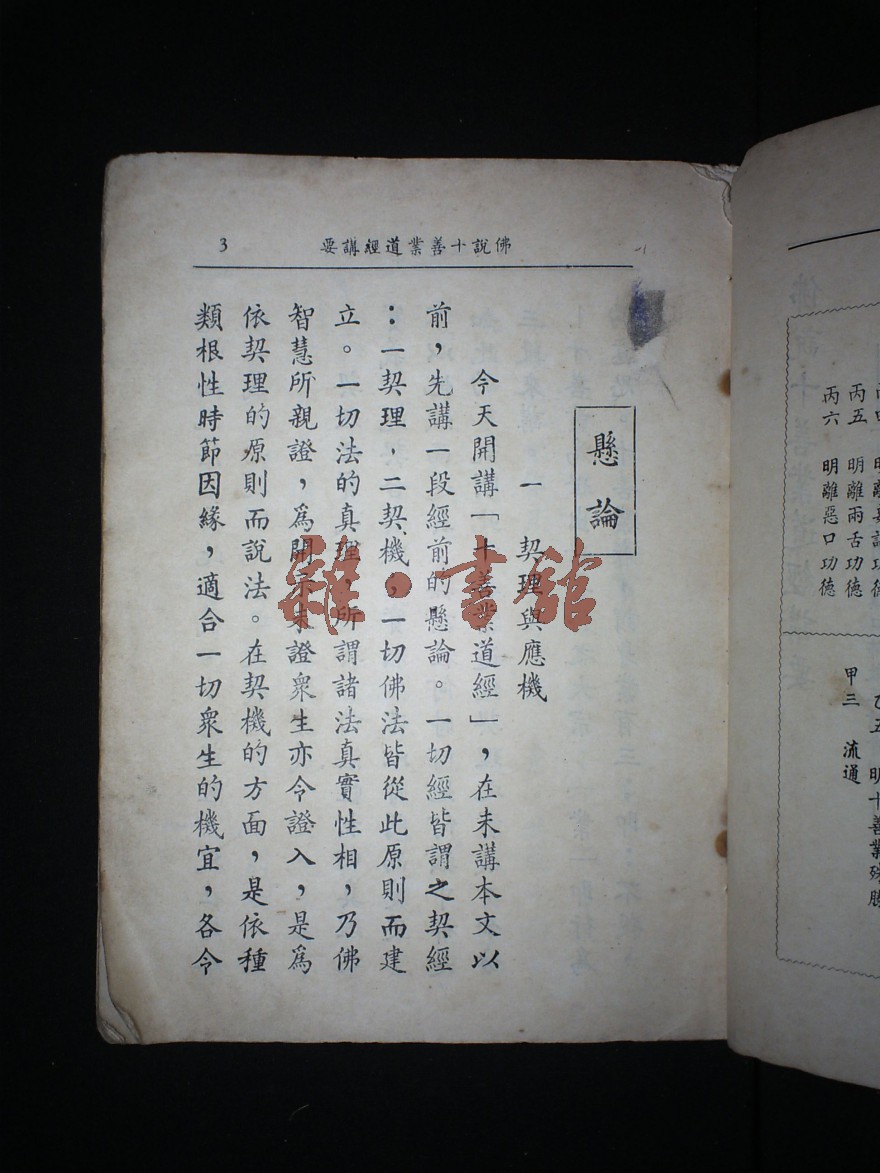 佛說十善業道經講要
3
懸論
一　契理與應機
今天開講「十善業道經」，在未講本文以
前，先講一段經前的懸論。一切經皆謂之契經
：一契理，二契機，一切佛法皆從此原則而建
立。一切法的真理，所謂諸法真實性相，乃佛
智慧所親證，為開示未證衆生亦令證入，是為
依契理的原則而說法。在契機的方面，是依種
類根性時節因緣，適合一切衆生的機宜，各令
雜·書館
丙五　明離兩舌功德
丙六　明離惡口功德
明十善業殊勝
甲三　流通